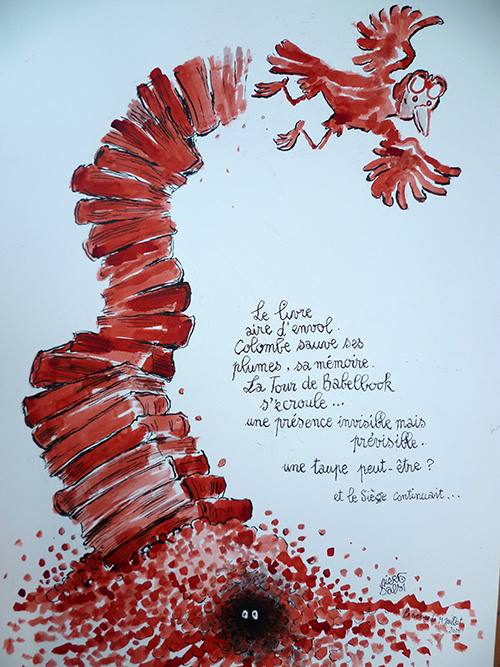 Le livre
aire d'envol.
Colombe sauve ses
plumes, sa mémoire.
La Tour de Babelbook
s'écroule...
une présence invisible mais
prévisible.
une taupe peut-être ?
et le Siège continuait...